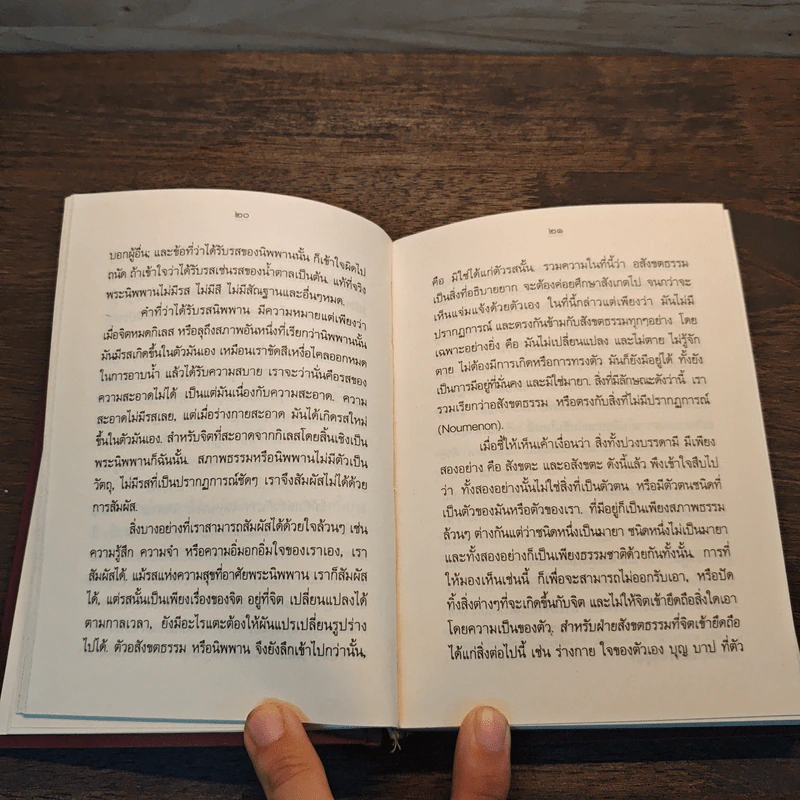 ๒๐
บอกผู้อื่น; และข้อที่ว่าได้รับรสของนิพพานนั้น ก็เข้าใจผิดไป
ถนัด ถ้าเข้าใจว่าได้รับรสเช่นรสของน้ำตาลเป็นต้น. แท้ที่จริง
พระนิพพานไม่มีรส ไม่มีสี ไม่มีสัณฐานและอื่นๆหมด.
คำที่ว่าได้รับรสนิพพาน มีความหมายแต่เพียงว่า
เมื่อจิตหมดกิเลส หรือลุถึงสภาพอันหนึ่งที่เรียกว่านิพพานนั้น
มันมีรสเกิดขึ้นในตัวมันเอง เหมือนเราขัดสีเหงื่อไคลออกหมด
ในการอาบน้ำ แล้วได้รับความสบาย เราจะว่านั่นคือรสของ
ความสะอาดไม่ได้ เป็นแต่มันเนื่องกับความสะอาด. ความ
สะอาดไม่มีรสเลย, แต่เมื่อร่างกายสะอาด มันได้เกิดรสใหม่
ขึ้นในตัวมันเอง. สำหรับจิตที่สะอาดจากกิเลสโดยสิ้นเชิงเป็น
พระนิพพานก็ฉันนั้น. สภาพธรรมหรือนิพพานไม่มีตัวเป็น
วัตถุ, ไม่มีรสที่เป็นปรากฏการณ์ชัดๆ เราจึงสัมผัสไม่ได้ด้วย
การสัมผัส.
สิ่งบางอย่างที่เราสามารถสัมผัสได้ด้วยใจล้วนๆ เช่น
ความรู้สึก ความจำ หรือความอิ่มอกอิ่มใจของเราเอง, เรา
สัมผัสได้. แม้รสแห่งความสุขที่อาศัยพระนิพพาน เราก็สัมผัส
ได้, แต่รสนั้นเป็นเพียงเรื่องของจิต อยู่ที่จิต เปลี่ยนแปลงได้
ตามกาลเวลา, ยังมีอะไรแตะต้องให้ผันแปรเปลี่ยนรูปร่าง
ไปได้. ตัวอสังขตธรรม หรือนิพพาน จึงยังลึกเข้าไปกว่านั้น,
๒๑
คือ มิใช่ได้แก่ตัวรสนั้น. รวมความในที่นี้ว่า อสังขตธรรม
เป็นสิ่งที่อธิบายยาก จะต้องค่อยศึกษาสังเกตไป จนกว่าจะ
เห็นแจ่มแจ้งด้วยตัวเอง ในที่นี้กล่าวแต่เพียงว่า มันไม่มี
ปรากฏการณ์ และตรงกันข้ามกับสังขตธรรมทุกๆอย่าง โดย
เฉพาะอย่างยิ่ง คือ มันไม่เปลี่ยนแปลง และไม่ตาย ไม่รู้จัก
ตาย ไม่ต้องมีการเกิดหรือการทรงตัว มันก็ยังมีอยู่ได้ ทั้งยัง
เป็นการมีอยู่ที่มั่นคง และมิใช่มายา. สิ่งที่มีลักษณะดังว่านี้ เรา
รวมเรียกว่าอสังขตธรรม หรือตรงกับสิ่งที่ไม่มีปรากฏการณ์
(Noumenon).
เมื่อชี้ให้เห็นเค้าเงื่อนว่า สิ่งทั้งปวงบรรดามี มีเพียง
สองอย่าง คือ สังขตะ และอสังขตะ ดังนี้แล้ว พึงเข้าใจสืบไป
ว่า ทั้งสองอย่างนั้นไม่ใช่สิ่งที่เป็นตัวตน หรือมีตัวตนชนิดที่
เป็นตัวของมันหรือตัวของเรา. ที่มีอยู่ก็เป็นเพียงสภาพธรรม
ล้วนๆ ต่างกันแต่ว่าชนิดหนึ่งเป็นมายา ชนิดหนึ่งไม่เป็นมายา
และทั้งสองอย่างก็เป็นเพียงธรรมชาติด้วยกันทั้งนั้น. การที่
ให้มองเห็นเช่นนี้ ก็เพื่อจะสามารถไม่ออกรับเอา, หรือปัด
ทิ้งสิ่งต่างๆที่จะเกิดขึ้นกับจิต และไม่ให้จิตเข้ายึดถือสิ่งใดเอา
โดยความเป็นของตัว. สำหรับฝ่ายสังขตธรรมที่จิตเข้ายึดถือ
ได้แก่สิ่งต่อไปนี้ เช่น ร่างกาย ใจของตัวเอง บุญ บาป ที่ตัว